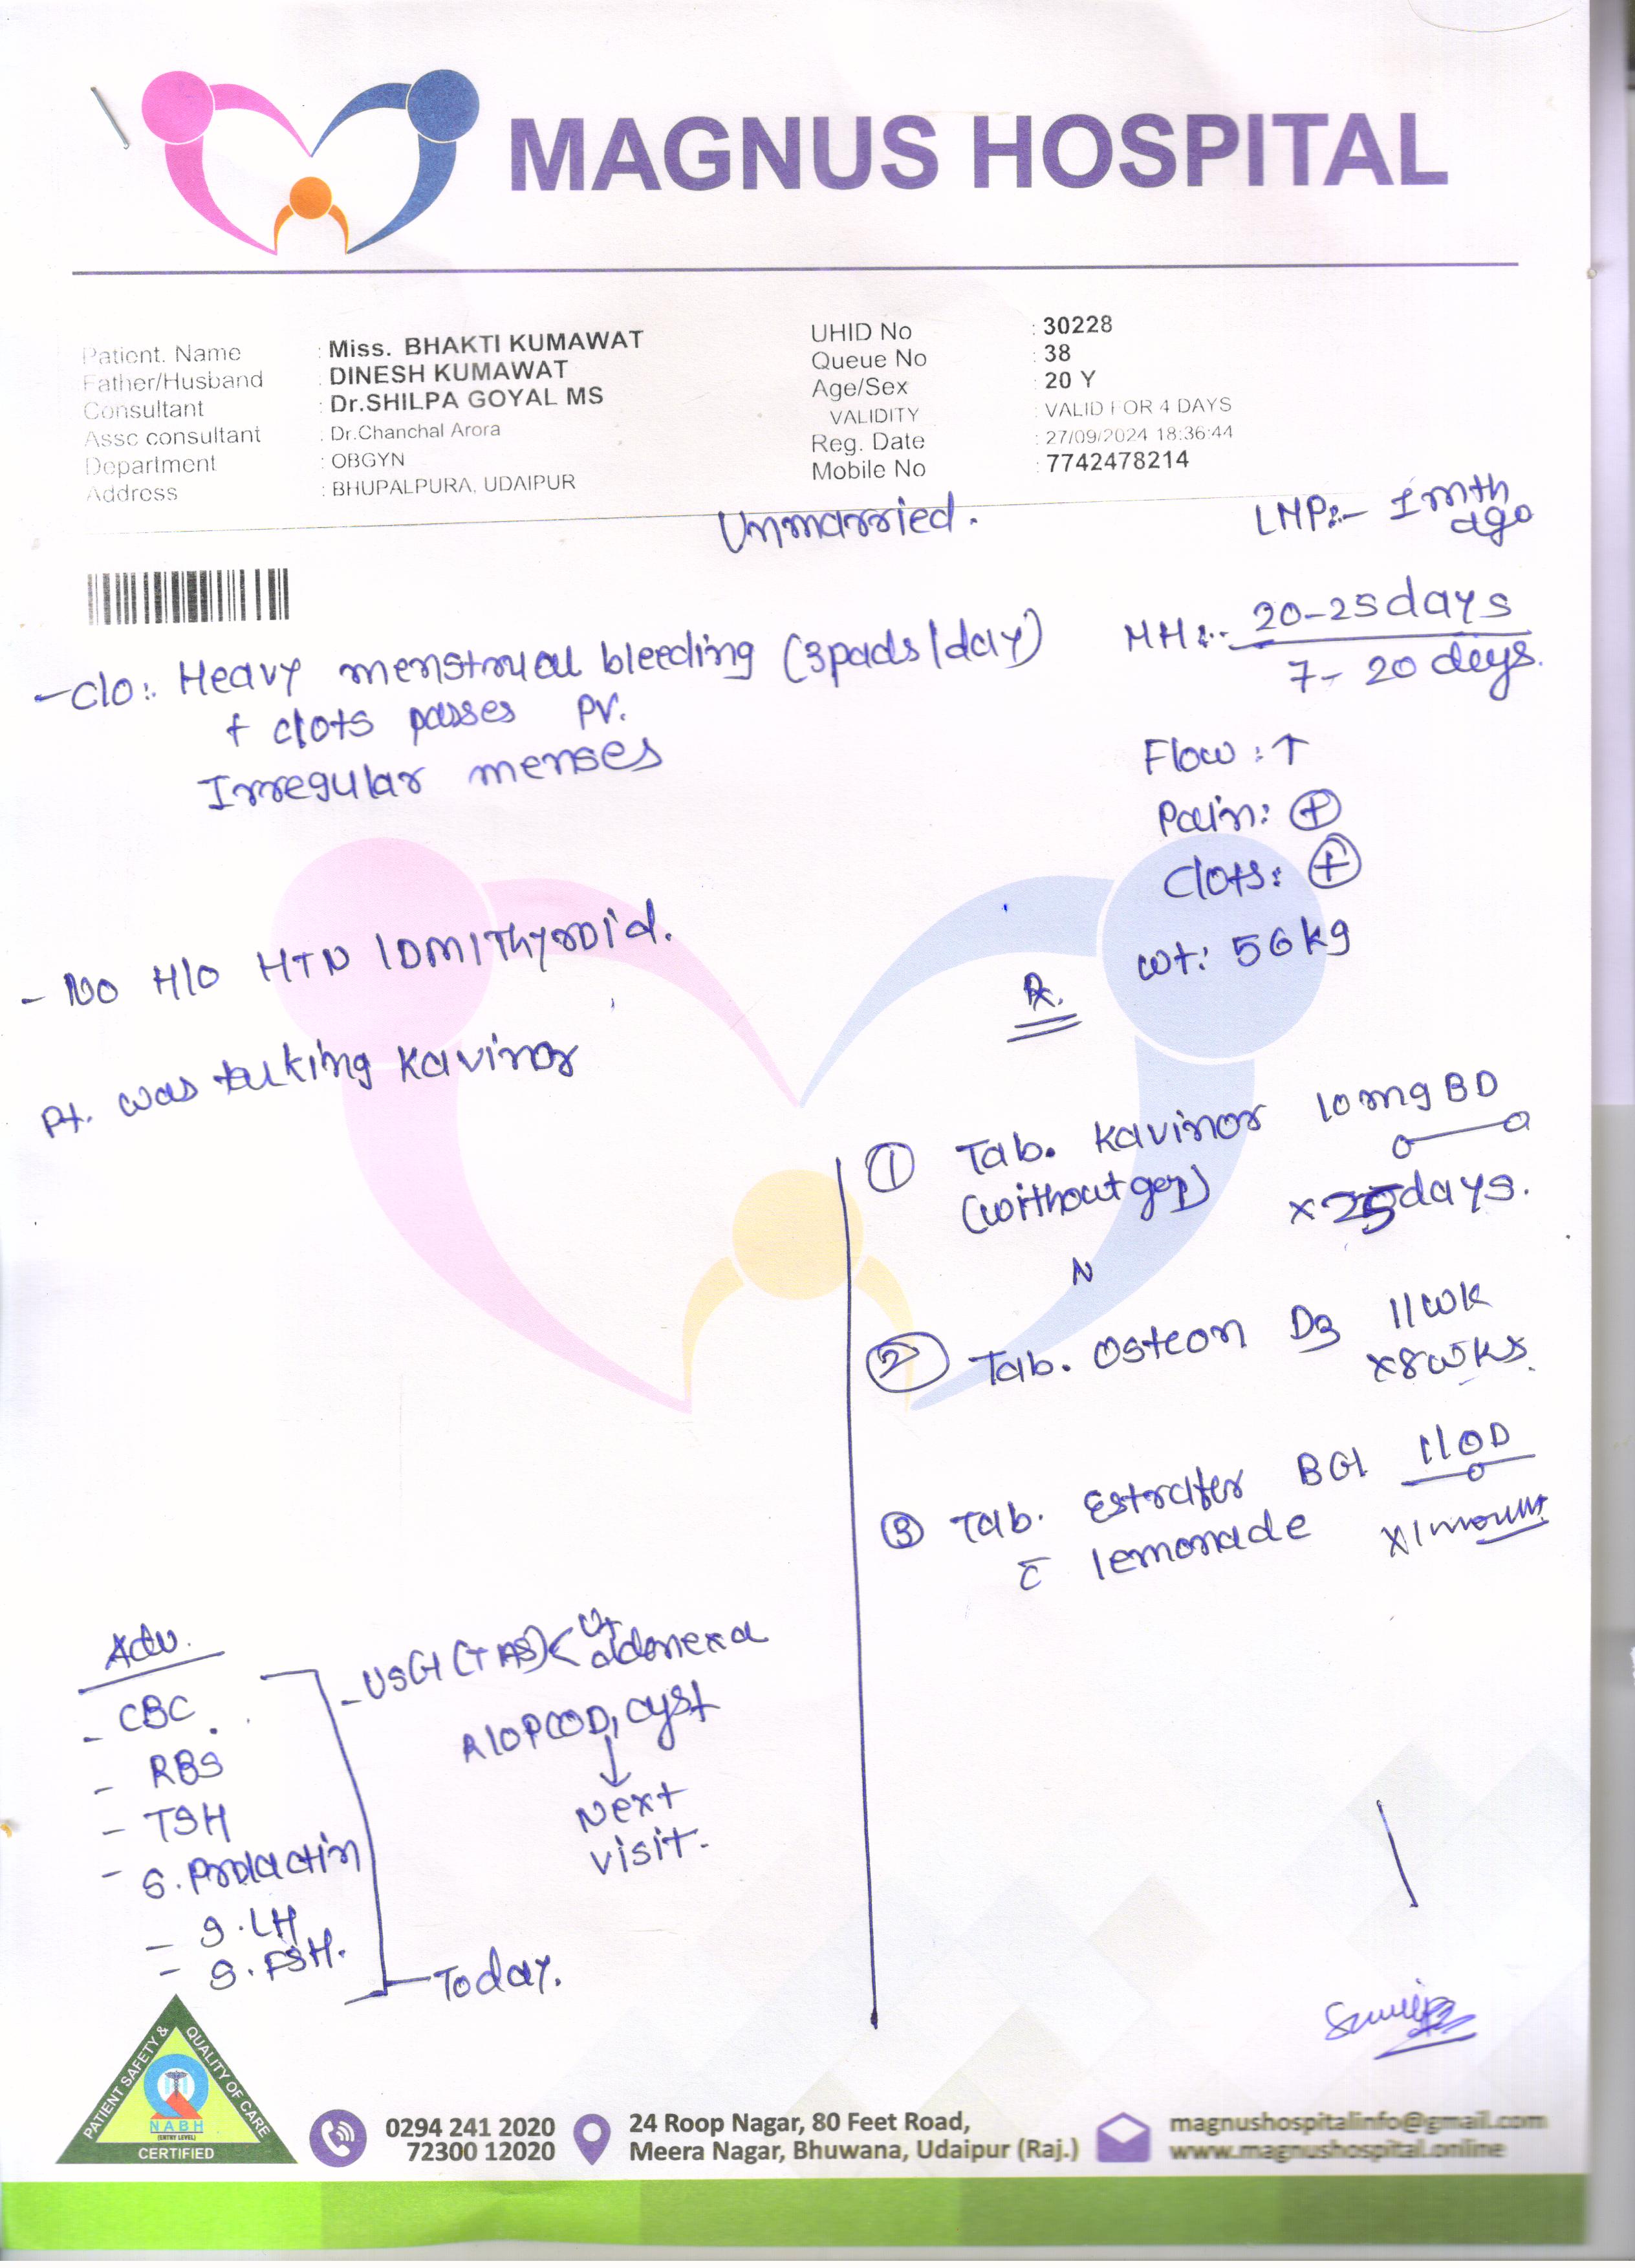 MAGNUS HOSPITAL
Patient. Name : Miss. BHAKTI KUMAWAT
Father/Husband : DINESH KUMAWAT
Consultant : Dr.SHILPA GOYAL MS
Assc consultant : Dr.Chanchal Arora
Department : OBGYN
Address : BHUPALPURA, UDAIPUR
UHID No : 30228
Queue No : 38
Age/Sex : 20 Y
VALIDITY : VALID FOR 4 DAYS
Reg. Date : 27/09/2024 18:36:44
Mobile No : 7742478214
Unmarried.
LMP:- 1 mth
ago
- C/o: Heavy menstrual bleeding (3pads/day)
+ clots passes PV.
Irregular menses
MH:- 20-25days
7-20 days.
Flow : ↑
Pain: ⊕
Clots: ⊕
wt: 56kg
- No H/o HTN/DM/Thyroid.
Pt. was taking Kavinor
Rx.
① Tab. Kavinor 10mg BD
(without gap) x25days.
N
② Tab. Osteon D3 1/wk
x8wks.
③ Tab. Estrafer BG 1/OD
c̄ lemonade x1mount
Adv.
- CBC.
- RBS
- TSH
- S.Prolactin
- S.LH
- S.FSH.
Today.
- USG (TAS) < Ut
adenexa
R/o PCOD, cyst
↓
Next
visit.
PATIENT SAFETY & QUALITY OF CARE
NABH
(ENTRY LEVEL)
CERTIFIED
0294 241 2020
72300 12020
24 Roop Nagar, 80 Feet Road,
Meera Nagar, Bhuwana, Udaipur (Raj.)
magnushospitalinfo@gmail.com
www.magnushospital.online